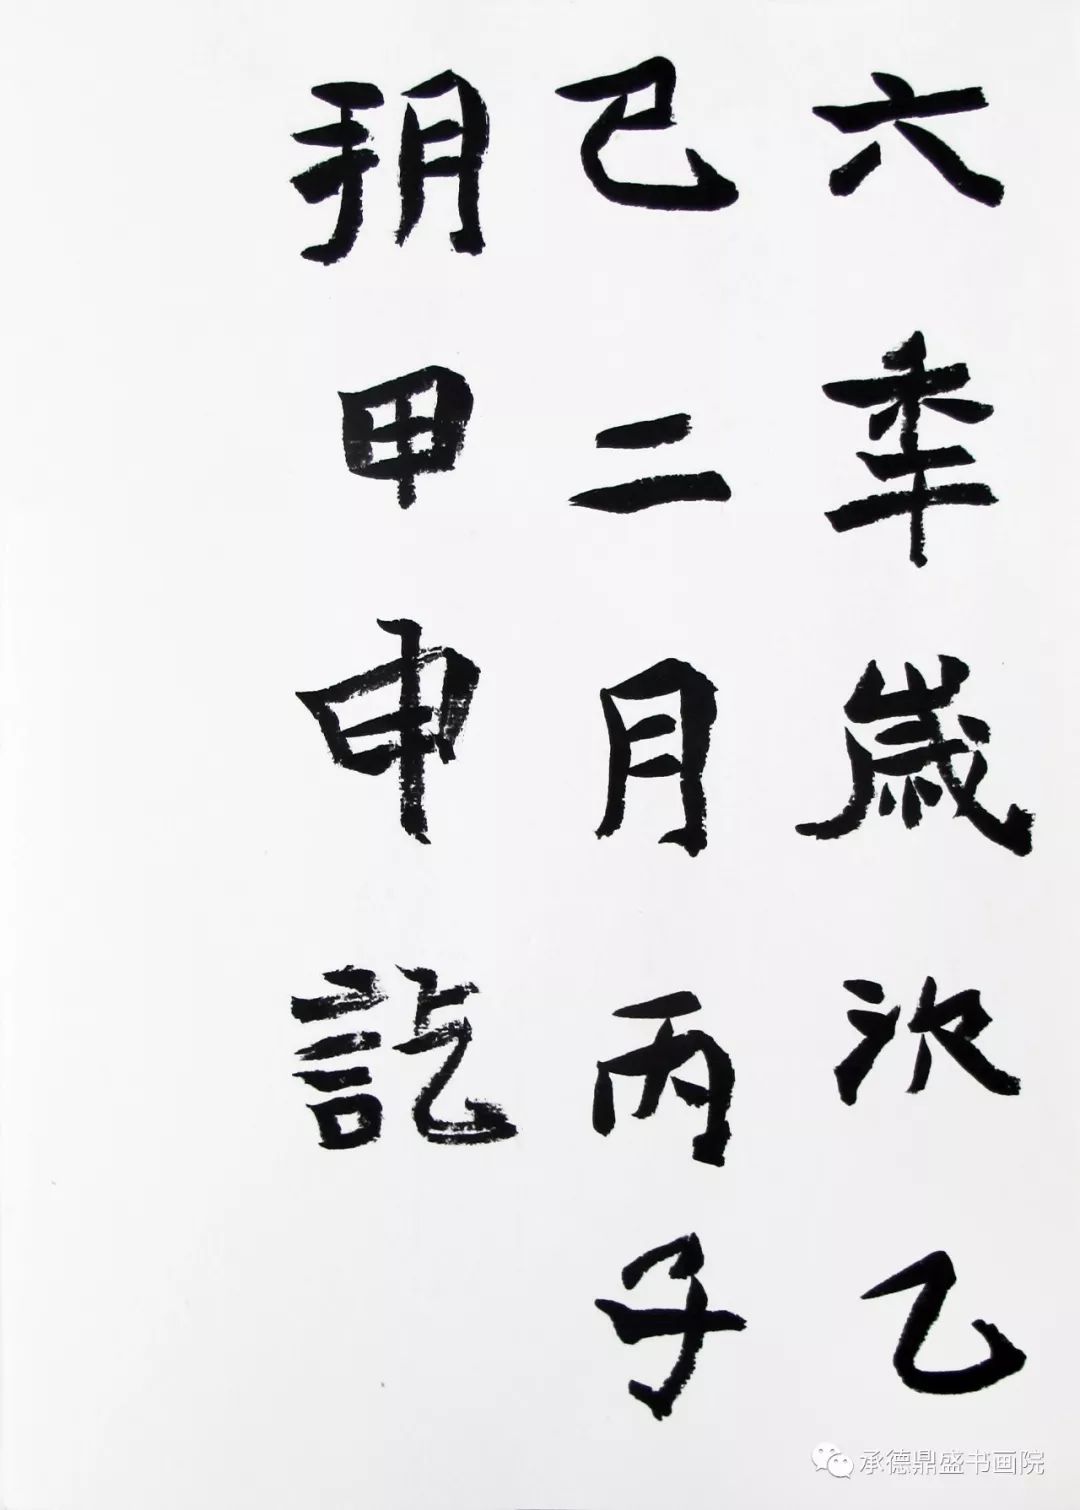 六秊歲次乙
巳二月丙子
朔甲申訖
承德鼎盛书画院